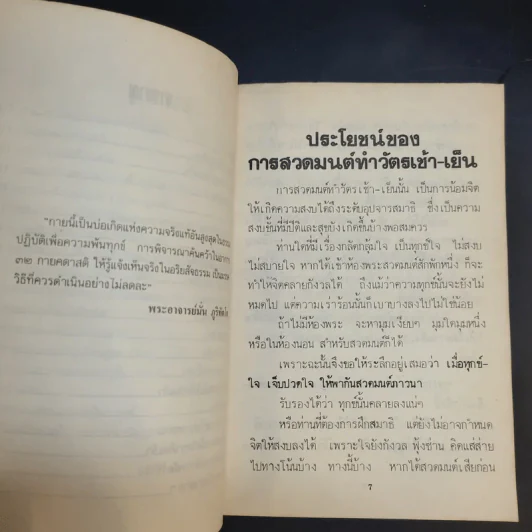 "กายนี้เป็นบ่อเกิดแห่งความจริงแท้อันสูงสุดในการ
ปฏิบัติเพื่อความพ้นทุกข์ การพิจารณาค้นคว้าในอาการ
๓๒ กายคตาสติ ให้รู้แจ้งเห็นจริงในอริยสัจธรรม เป็น
วิธีที่ควรดำเนินอย่างไม่ลดละ"
พระอาจารย์มั่น ภูริทัตโต
ประโยชน์ของ
การสวดมนต์ทำวัตรเช้า-เย็น
การสวดมนต์ทำวัตรเช้า-เย็นนั้น เป็นการน้อมจิต
ให้เกิดความสงบได้ถึงระดับอุปจารสมาธิ ซึ่งเป็นความ
สงบขั้นที่มีปีติและสุขบังเกิดขึ้นบ้างพอสมควร
ท่านใดที่มีเรื่องกลัดกลุ้มใจ เป็นทุกข์ใจ ไม่สงบ
ไม่สบายใจ หากได้เข้าห้องพระสวดมนต์สักพักหนึ่ง ก็จะ
ทำให้จิตใจคลายกังวลได้ ถึงแม้ว่าความทุกข์นั้นจะยังไม่
หมดไป แต่ความเร่าร้อนนั้นก็เบาบางลงไปไม่ใช่น้อย
ถ้าไม่มีห้องพระ จะหามุมเงียบๆ มุมใดมุมหนึ่ง
หรือในห้องนอน สำหรับสวดมนต์ก็ได้
เพราะฉะนั้นจึงขอให้ระลึกอยู่เสมอว่า เมื่อทุกข์-
ใจ เจ็บปวดใจ ให้พากันสวดมนต์ภาวนา
รับรองได้ว่า ทุกข์นั้นคลายลงแน่ๆ
หรือท่านที่ต้องการฝึกสมาธิ แต่ยังไม่อาจกำหนด
จิตให้สงบลงได้ เพราะใจยังกังวล ฟุ้งซ่าน คิดแส่ส่าย
ไปทางโน้นบ้าง ทางนี้บ้าง หากได้สวดมนต์เสียก่อน
7